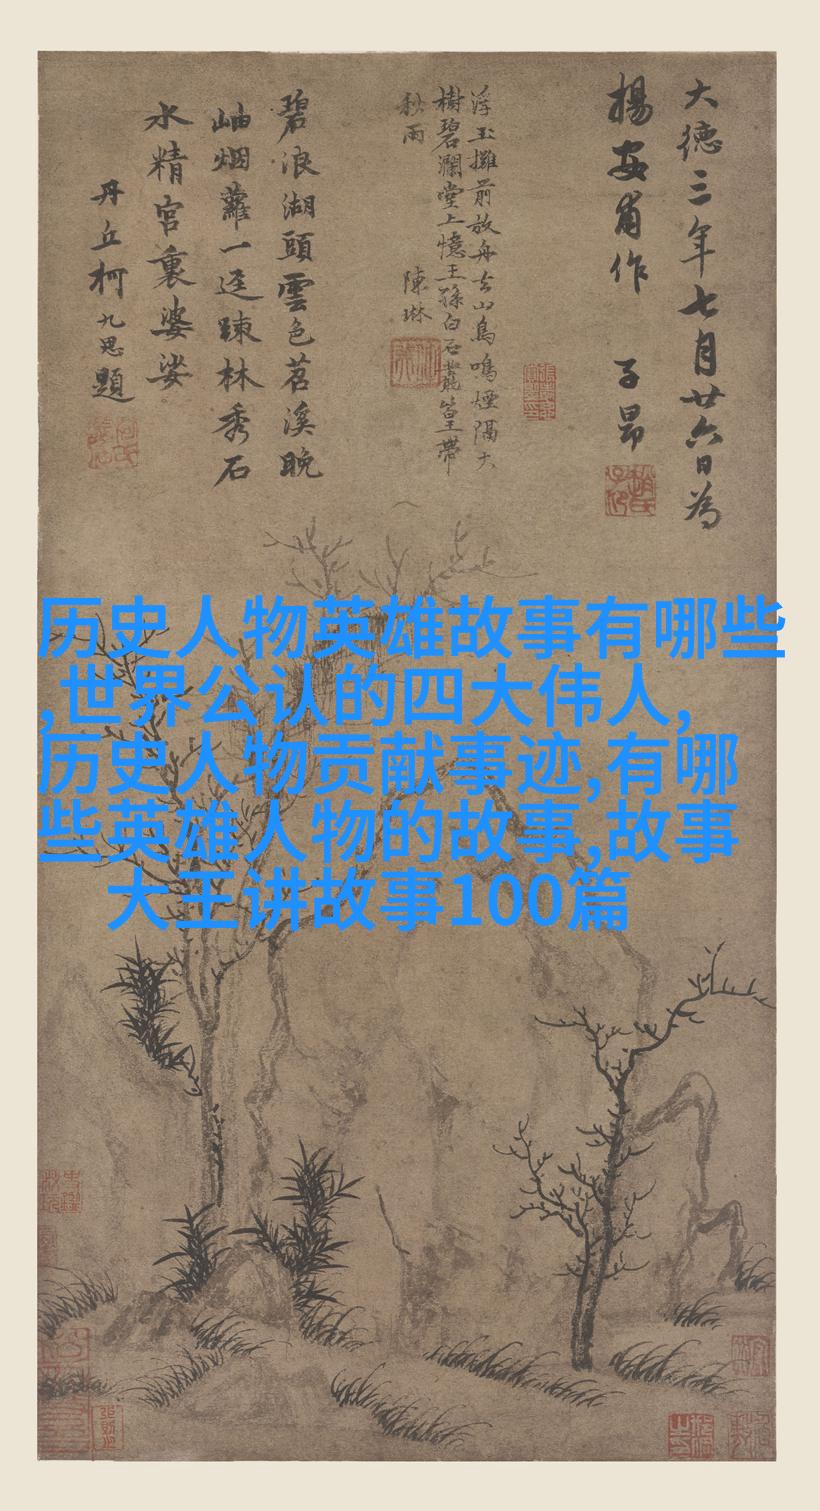 大德三年七月廿六日為
楊安甫作 子昂
浮玉攤前放舟去山鳥鳴煙隔大
樹碧瀾堂上憶王孫白石叢篁帶
秋雨 陳琳
碧浪湖頭雲色茗溪晚
岫烟蘿一逕踈林秀石
水精宮裏婆娑
丹丘柯九思題
历史人物英雄故事有哪些
,世界公认的四大伟人,
历史人物贡献事迹,有哪
些英雄人物的故事,故事
大王讲故事100篇